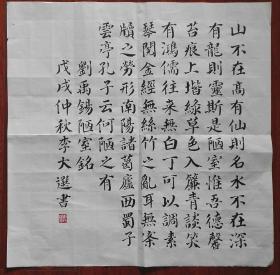 山不在高有仙則名水不在深
有龍則靈斯是陋室惟吾德馨
苔痕上堦綠草色入簾青談笑
有鴻儒往来無白丁可以調素
琴閲金經無絲竹之亂耳無案
牘之勞形南陽諸葛廬西蜀子
雲亭孔子云何陋之有
劉禹錫陋室銘
戊戌仲秋李大選書